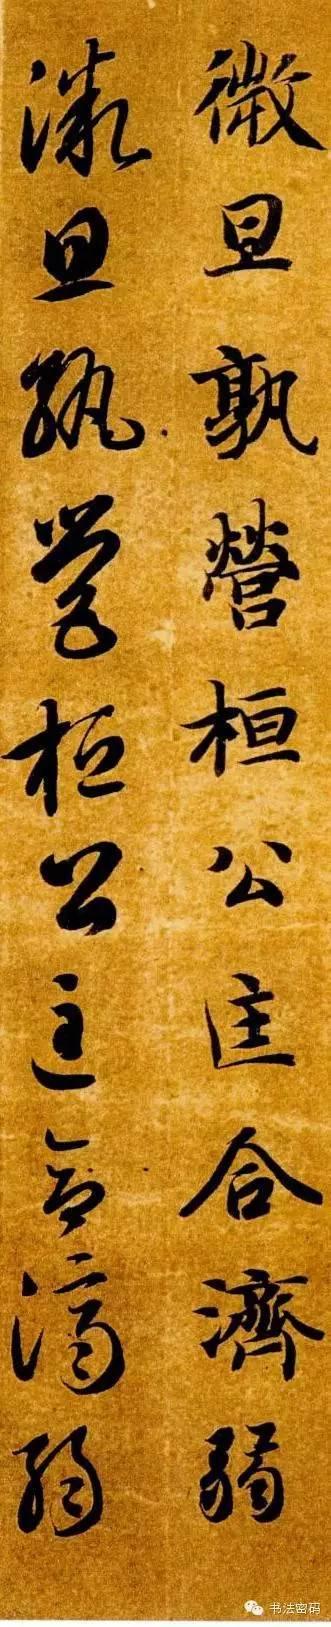 微旦孰營桓公匡合濟弱
微旦孰營桓公匡合濟弱
书法密码